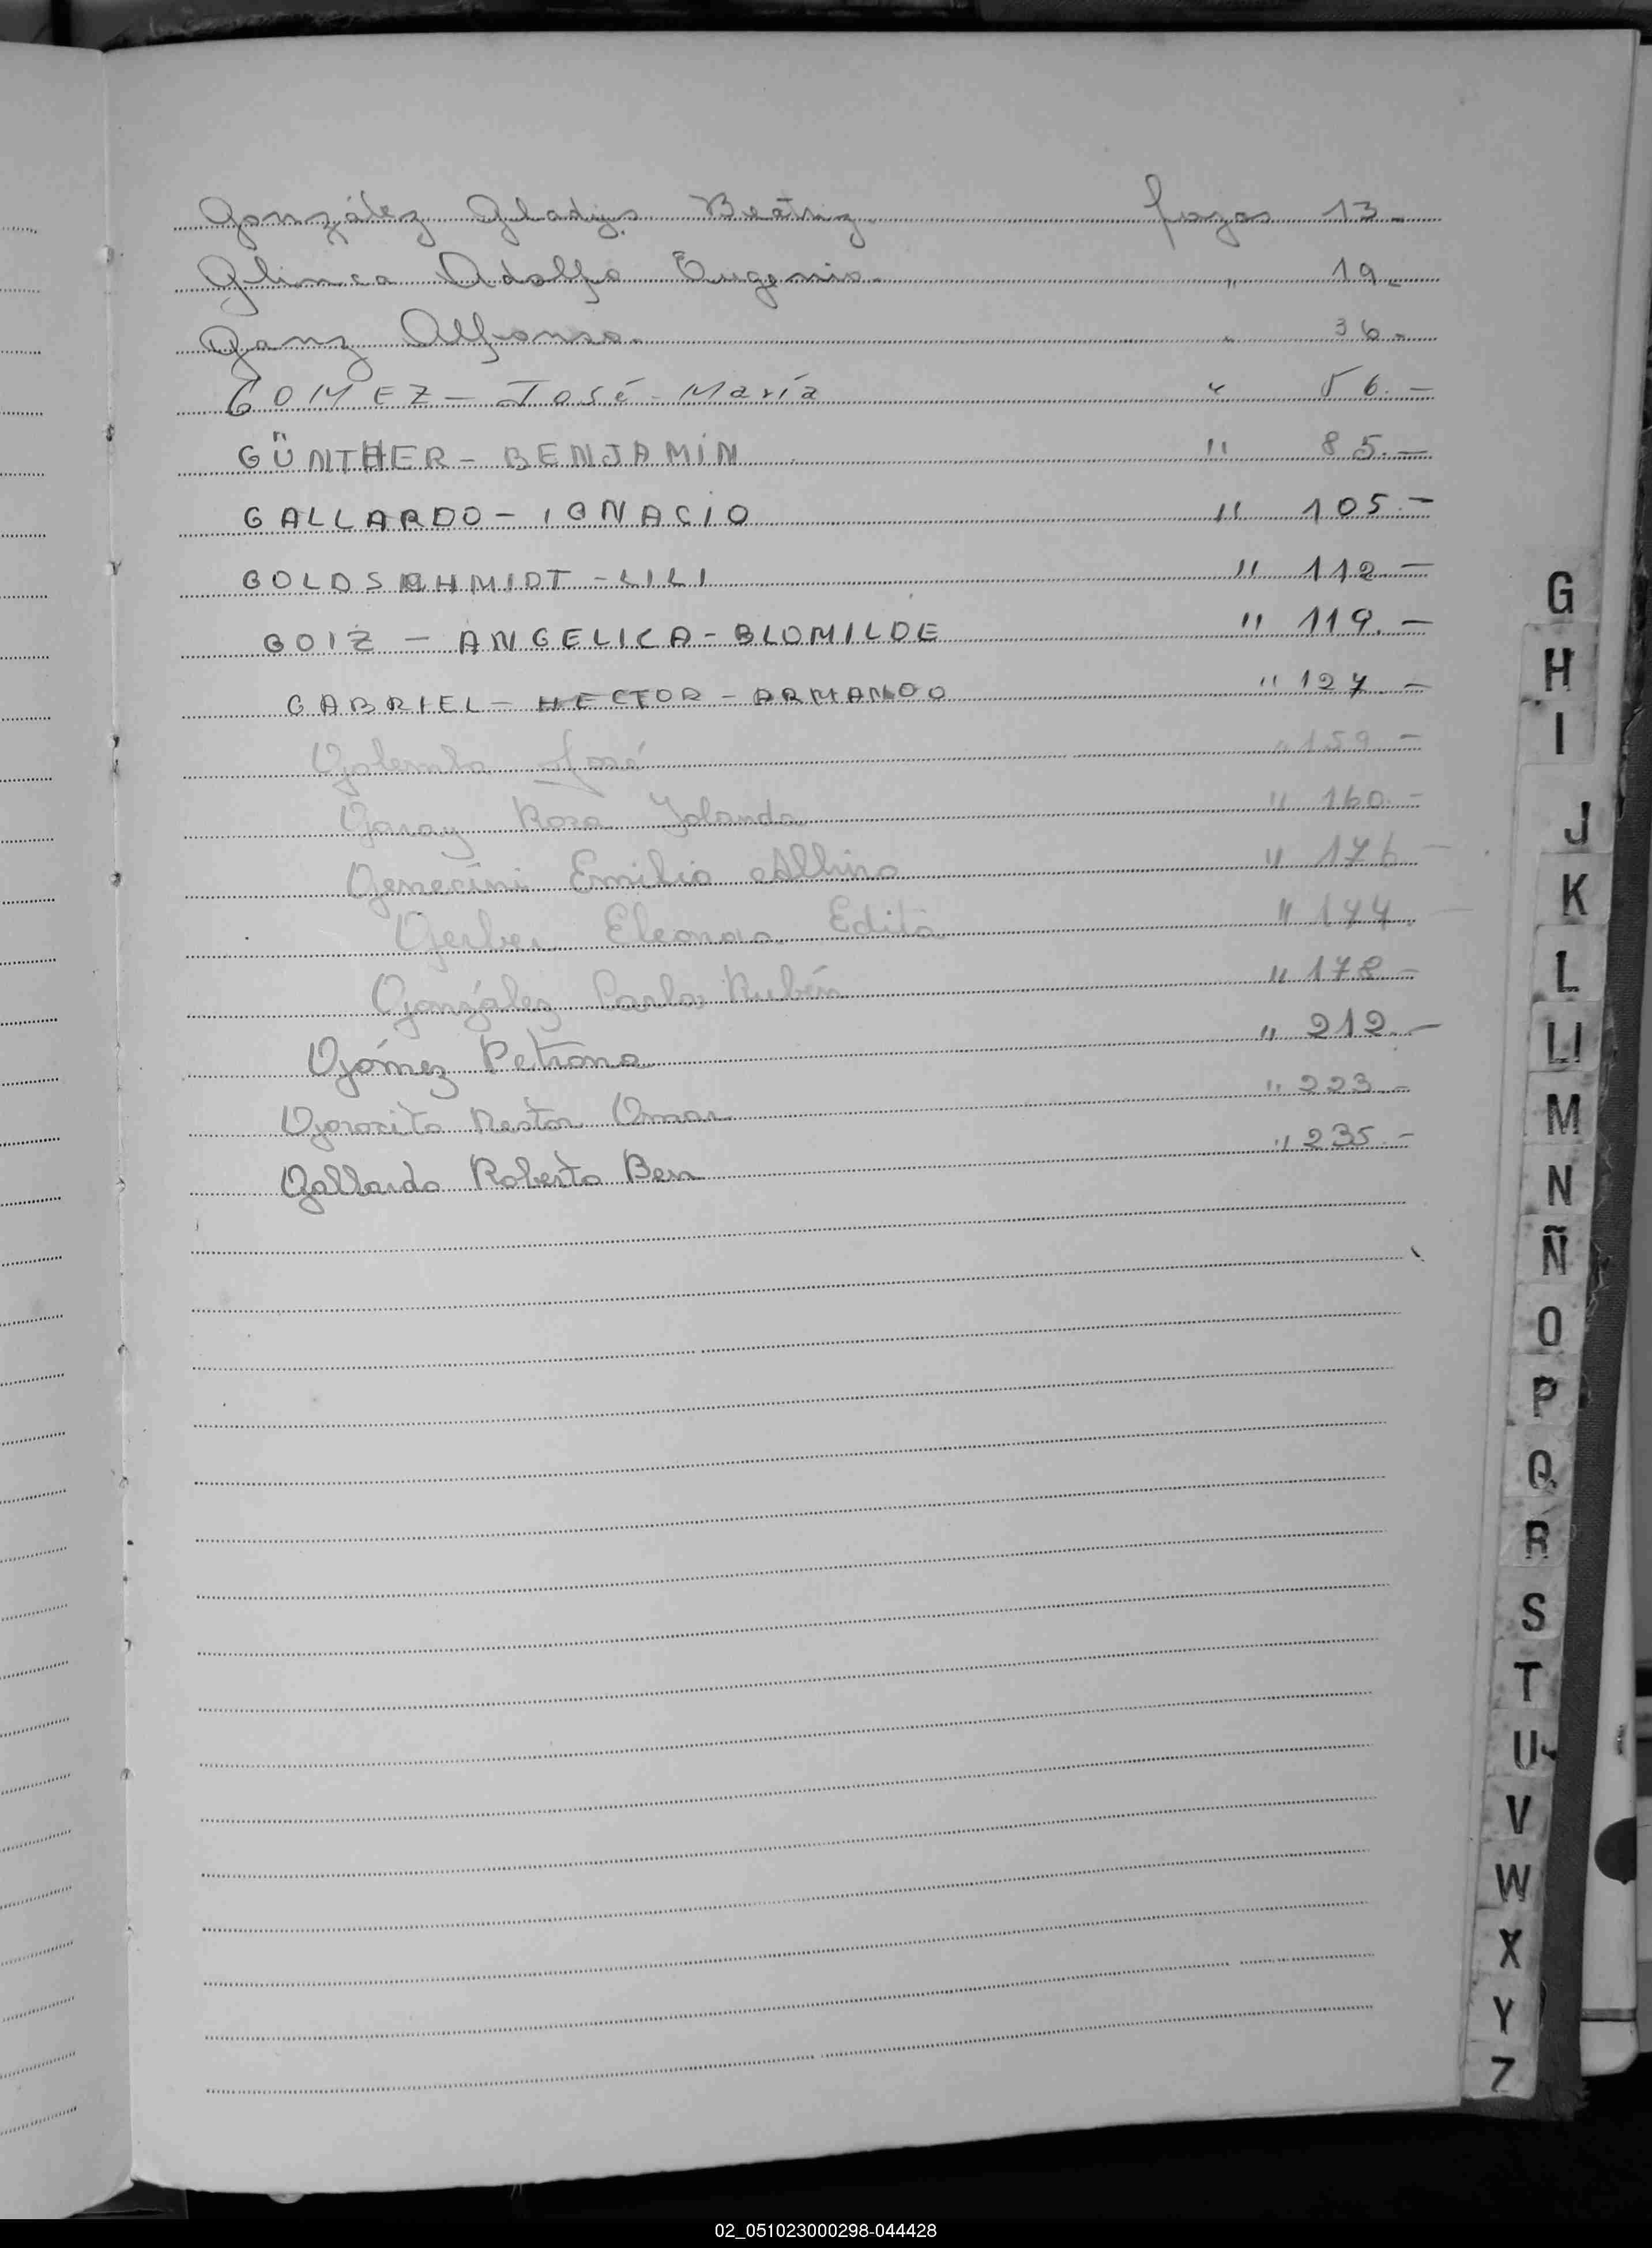 González Gladys Beatriz fojas 13.-
Glinca Adolfo Eugenio. " 19.-
Ganz Alfonso. " 36.-
GOMEZ - José - María " 56.-
GÜNTHER - BENJAMIN " 85.-
GALLARDO - IGNACIO " 105.-
GOLDSCHMIDT - LILI " 112.-
GOIZ - ANGELICA - BLOMILDE " 119.-
GABRIEL - HECTOR - ARMANDO " 127.-
José " 159.-
Garay Rosa Yolanda " 160.-
Genecini Emilio Albino " 176.-
Gerber Eleonora Edita " 177.-
González Carlos Rubén " 178.-
Gómez Petrona " 212.-
Gorosito Nestor Omar " 223.-
Gallardo Roberto Ben " 235.-
G
H
I
J
K
L
Ll
M
N
Ñ
O
P
Q
R
S
T
U
V
W
X
Y
Z
02_051023000298-044428